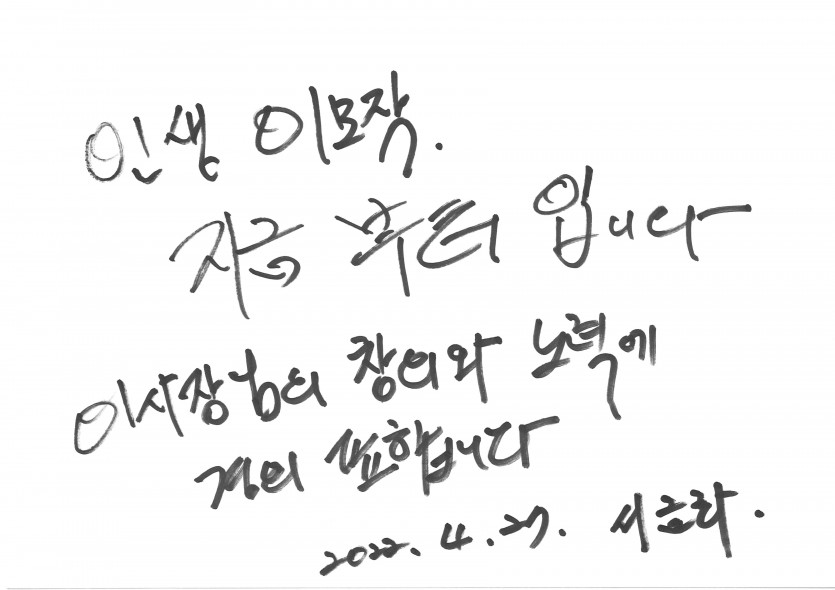 인생 이모작.
지금 부터 입니다
이사장님의 창의와 노력에
경의 표합니다
2022. 4. 27.